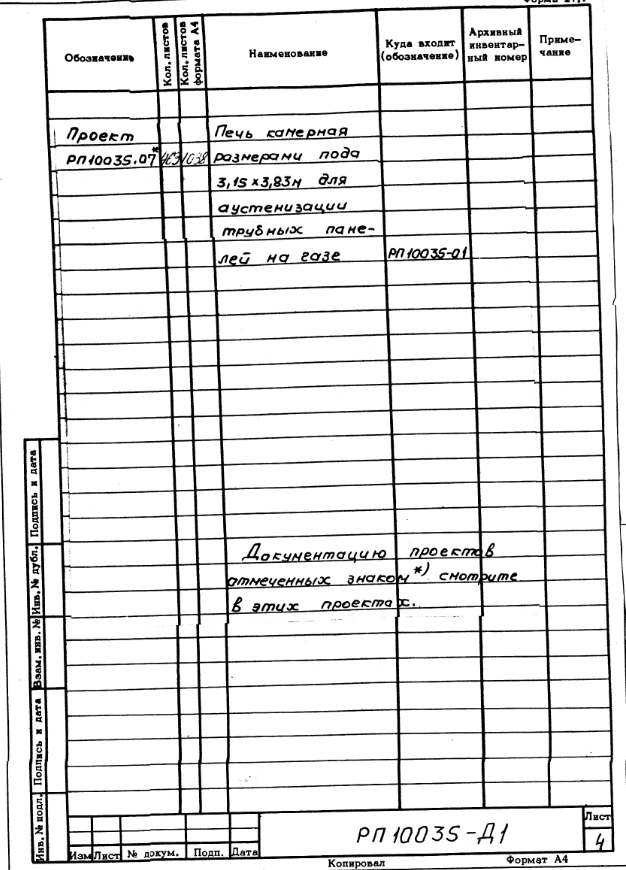 Обозначение
Кол. листов
Кол. листов формата А4
Наименование
Куда входит (обозначение)
Архивный инвентар-ный номер
Приме-чание
Проект Печь камерная
РП10035.07* 1038 размерами пода
3,15×3,83м для
аустенизации
трубных пане-
лей на газе РП10035-01
Документацию проектов
отмеченных знаком *) смотрите
в этих проектах.
Подпись и дата
Инв. № дубл.
Взам. инв. №
Подпись и дата
Инв. № подл.
Изм Лист № докум. Подп. Дата
РП10035-Д1
Лист
4
Копировал Формат А4